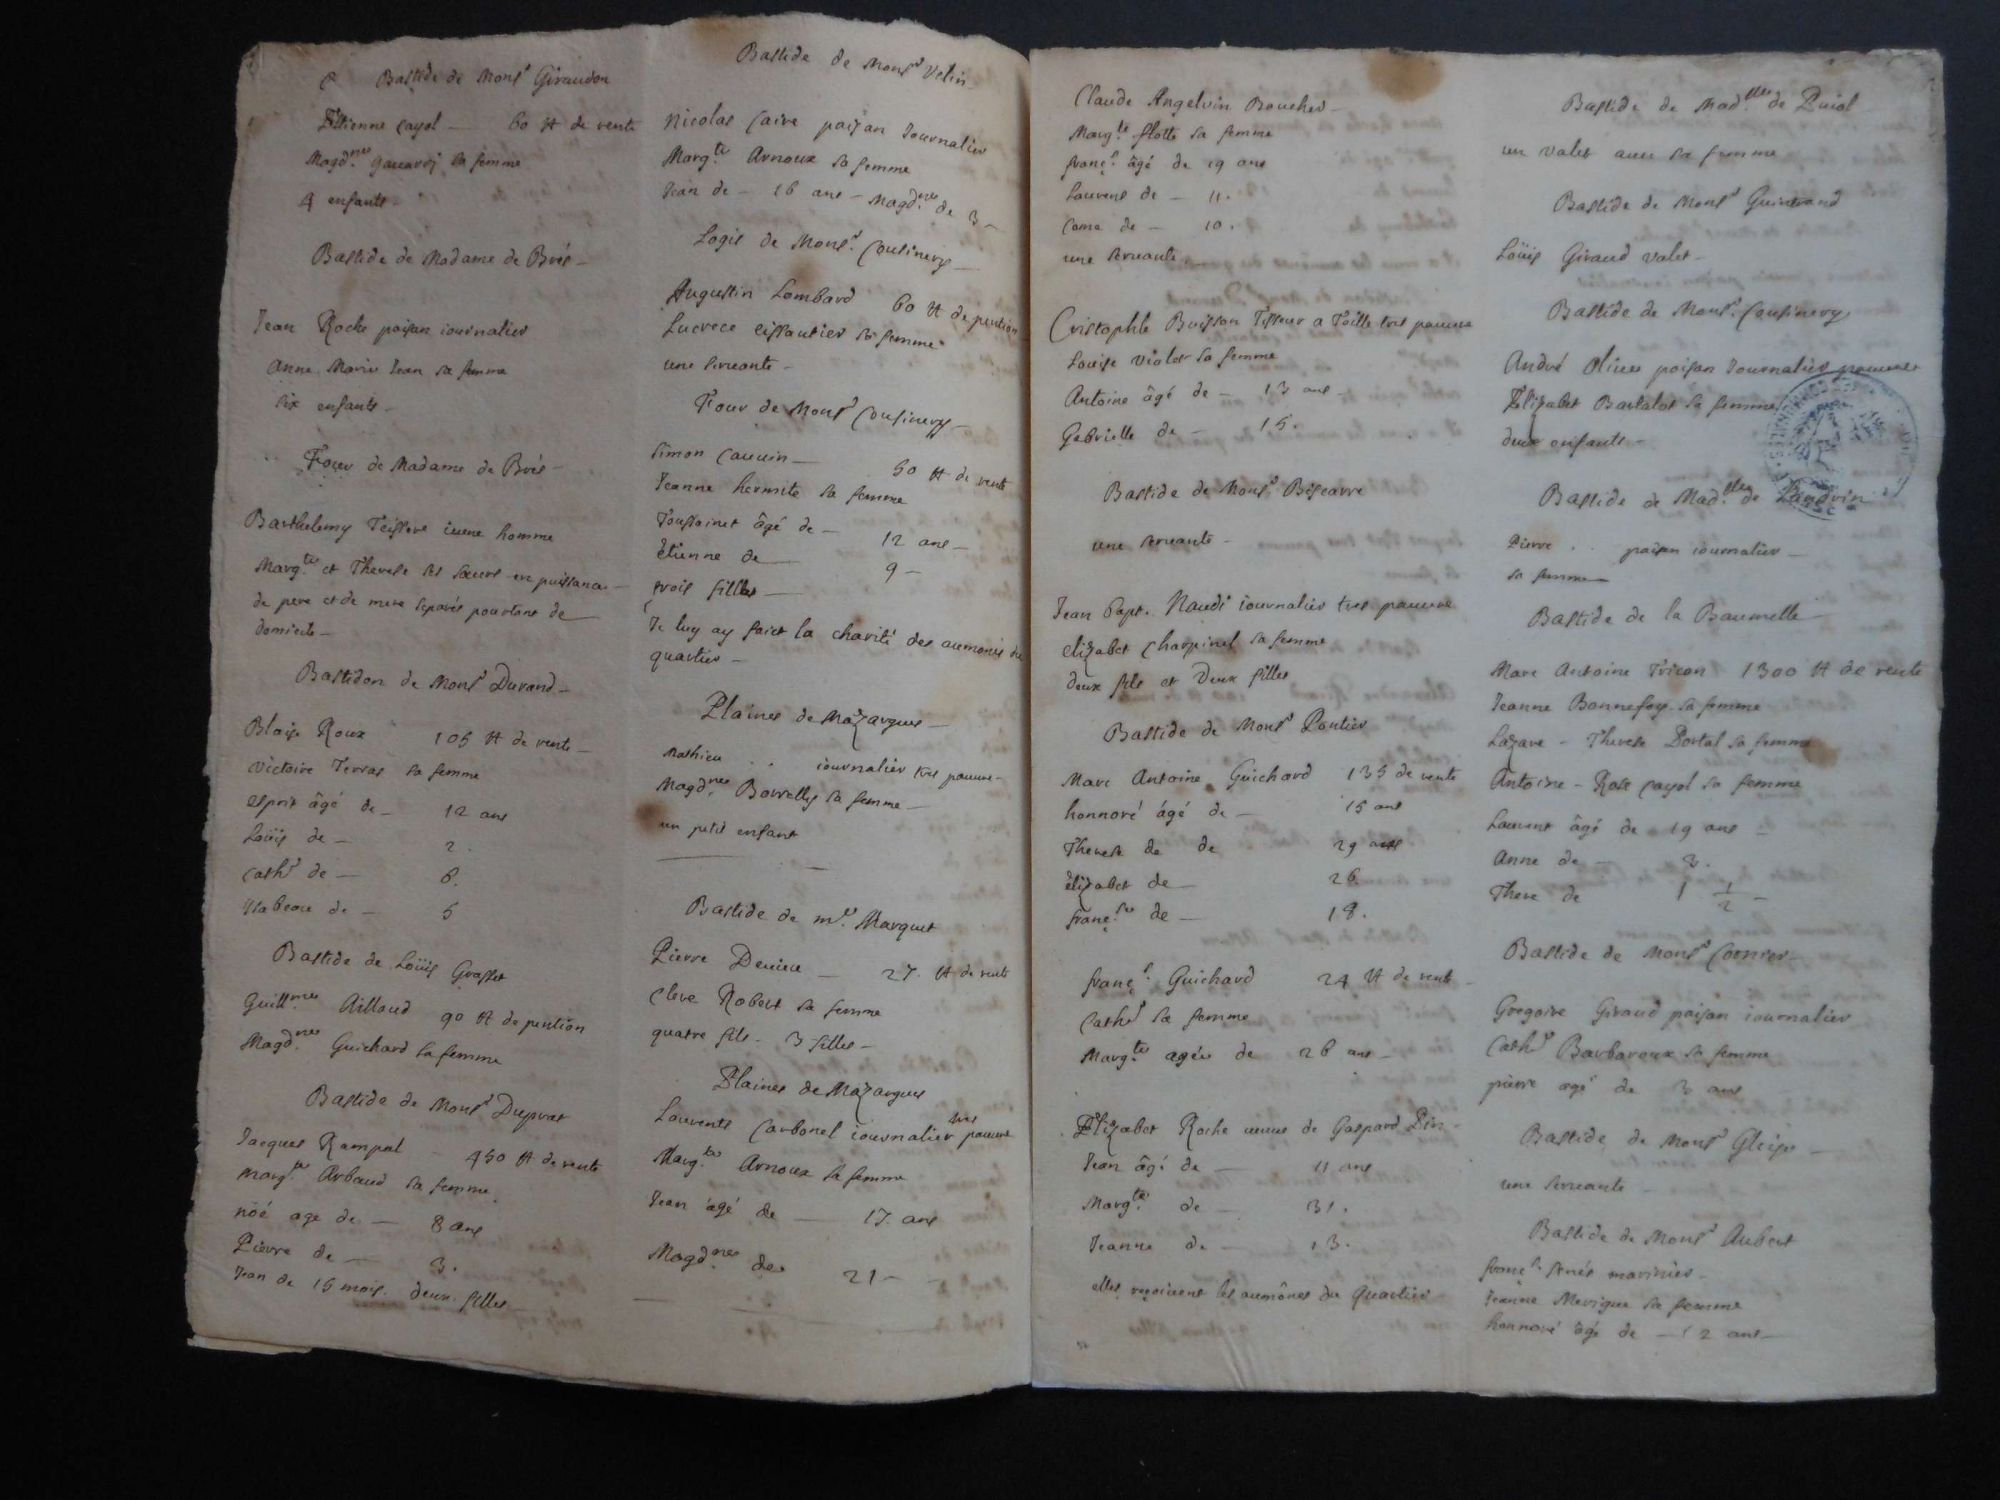 Bastide de Monsr Giraudon
Étienne Cayol — 60 ₶ de rente
Magdne Gauardj sa femme
4 enfants -
Bastide de Madame de Brés -
Jean Roche paisan iournalier
Anne Marie Jean sa femme
six enfants -
Four de Madame de Brés -
Barthelemy Teissere ieune homme
Margte et Therese ses sœurs en puissance
de pere et de mere separés pourtant de
domicile -
Bastidon de Monsr Durand -
Blaise Roux 105 ₶ de rente -
Victoire Terras sa femme
esprit âgé de - 12 ans
Loüis de - 2.
Cathe de - 6.
Isabeau de - 5
Bastide de Loüis Grasset
Guillme Aillaud 90 ₶ de pention
Magdne Guichard sa femme
Bastide de Monsr Duprat
Jacques Rampal 450 ₶ de rente
Margte Arbaud sa femme
nöé age de — 8 ans
Pierre de — 3.
Jean de 15 mois. deux filles -
Bastide de Monsr Velin -
Nicolas Caire paisan Journalier
Margte Arnoux sa femme
Jean de - 16 ans - Magdne de 3 -
Logis de Monsr Cousinery -
Augustin Lombard 60 ₶ de pention
Lucrece eissautier sa femme
une seruante -
Four de Monsr Cousinery -
Simon Cauuin — 50 ₶ de rente
Jeanne hermite sa femme
Toussainct âgé de - 12 ans -
Étienne de — 9 -
trois filles -
Je luy ay faict la charité des aumones du
quartier -
Plaines de Mazargues -
Mathieu . . iournalier tres pauure -
Magdne Borrelly sa femme -
un petit enfant
Bastide de mr Marquet
Pierre Deuieu — 27. ₶ de rente
Clere Robert sa femme
quatre fils - 3 filles -
Plaines de Mazargues
Laurents Carbonel iournalier tres pauure
Margte Arnoux sa femme
Jean âgé de — 17. ans
Magdne de 21 -
Claude Angeluin Boucher -
Margte flotte sa femme
françs âgé de 19 ans
Laurens de - 11.
Come de - 10.
une seruante
Cristophle Buisson Tisseur a Toille tres pauure
Louise Violet sa femme
Antoine âgé de - 13 ans -
Gabrielle de - 15.
Bastide de Monsr Biscarre
une seruante -
Jean Bapt. Naudi iournalier tres pauure
elizabet Charpinel sa femme
deux fils et Deux filles
Bastide de Monsr Pontier
Marc Antoine Guichard 135 de rente
honnoré âgé de — 15 ans
Therese de de 29 ans
Élizabet de — 26
françse de — 18.
françs Guichard 24 ₶ de rente -
Cathe sa femme
Margte agée de 26 ans -
Élizabet Roche ueuue de Gaspard Pin -
Jean âgé de — 11 ans
Margte de — 31.
Jeanne de — 13.
elles reçoiuent les aumônes du Quartier -
Bastide de Madlle de Puiol
un valet auec sa femme
Bastide de Monsr Guintrand
Loüis Giraud valet -
Bastide de Monsr Cousinery
André oliue paisan Journalier pauure
Élizabet Bartalot sa femme
deux enfants -
Bastide de Madlle de Landrin
Pierre . . paisan iournalier -
sa femme
Bastide de la Baumelle
Marc Antoine Tricon 1300 ₶ de rente
Jeanne Bonnefoy sa femme
Lazare - Therese Portal sa femme
Antoine - Rose Cayol sa femme
Laurent âgé de 19 ans -
Anne de - 3.
There de 1 1/2 -
Bastide de Monsr Cornier -
Gregoire Giraud paisan iournalier
Cathe Barbaroux sa femme
pierre agé de 3 ans
Bastide de Monsr Gleise -
une seruante -
Bastide de Monsr Aubert
françs Arnés marinier -
Jeanne Merigue sa femme
honnoré âgé de - 12 ans -